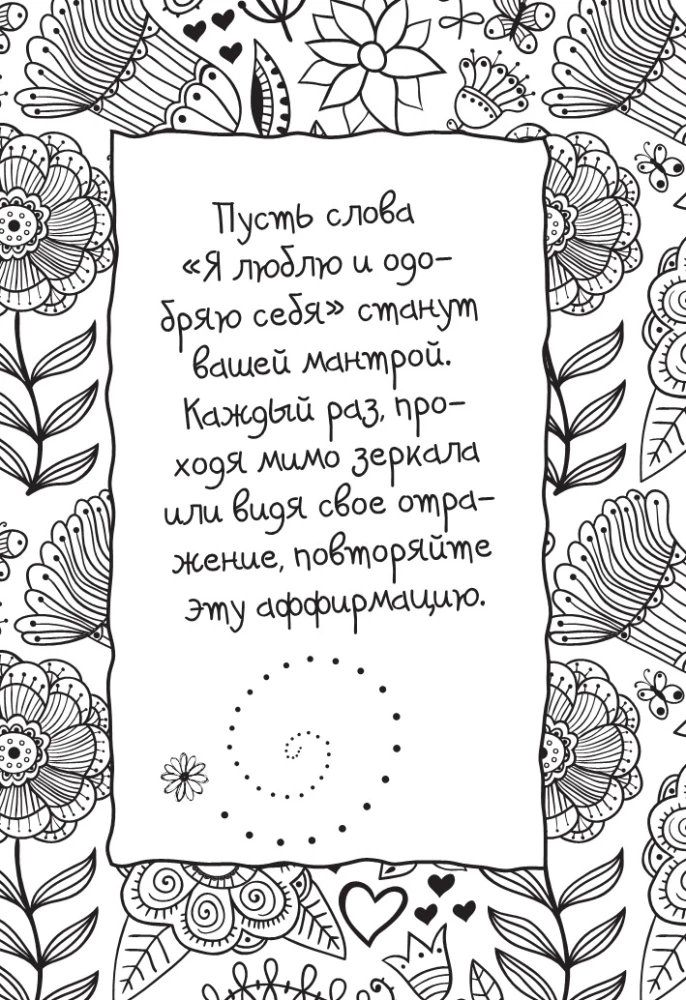 Пусть слова
«Я люблю и одо-
бряю себя» станут
вашей мантрой.
Каждый раз, про-
ходя мимо зеркала
или видя свое отра-
жение, повторяйте
эту аффирмацию.